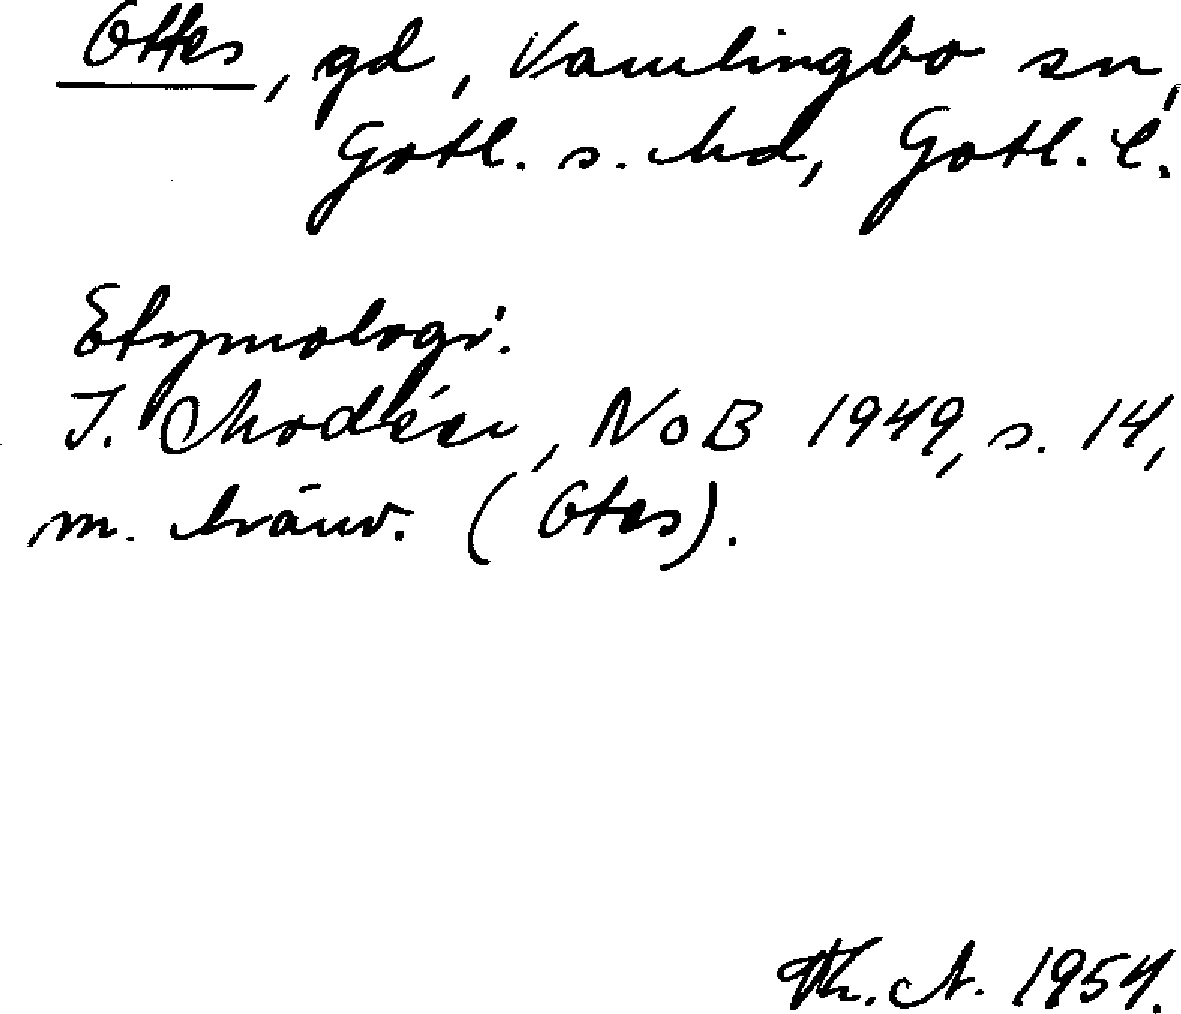 Ottes, gd, Vamlingbo sn,
Gotl. s. hd, Gotl. l.
Etymologi.
I. Modéer, NoB 1949, s. 14,
m. hänv. (Otes).
Th. A. 1954.